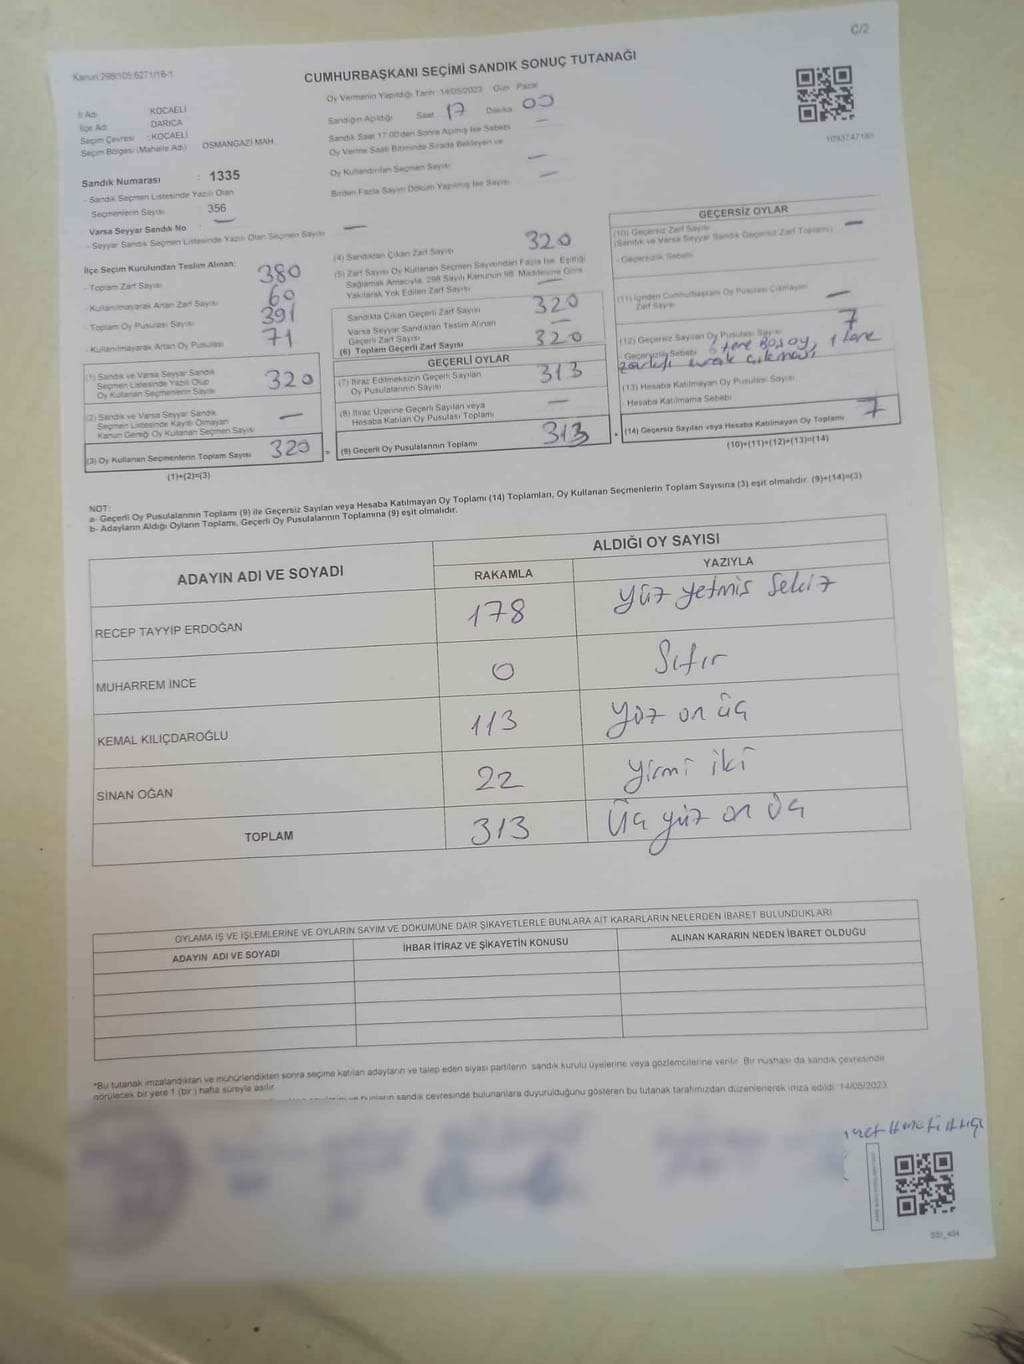 C/2
Kanun:298/105:6271/18-1
CUMHURBAŞKANI SEÇİMİ SANDIK SONUÇ TUTANAĞI
İl Adı : KOCAELİ
İlçe Adı : DARICA
Seçim Çevresi : KOCAELİ
Seçim Bölgesi (Mahalle Adı) OSMANGAZİ MAH.
Sandık Numarası : 1335
- Sandık Seçmen Listesinde Yazılı Olan
Seçmenlerin Sayısı 356
Varsa Seyyar Sandık No —
- Seyyar Sandık Seçmen Listesinde Yazılı Olan Seçmen Sayısı —
Oy Vermenin Yapıldığı Tarih :14/05/2023 Gün : Pazar
Sandığın Açıldığı Saat 17 Dakika 00
Sandık Saat 17:00'den Sonra Açılmış İse Sebebi —
Oy Verme Saati Bitiminde Sırada Bekleyen ve
Oy Kullandırılan Seçmen Sayısı —
Birden Fazla Sayım Döküm Yapılmış İse Sayısı —
1093747185
İlçe Seçim Kurulundan Teslim Alınan:
- Toplam Zarf Sayısı 380
- Kullanılmayarak Artan Zarf Sayısı 60
- Toplam Oy Pusulası Sayısı 391
- Kullanılmayarak Artan Oy Pusulası 71
(1) Sandık ve Varsa Seyyar Sandık
Seçmen Listesinde Yazılı Olup
Oy Kullanan Seçmenlerin Sayısı 320
(2) Sandık ve Varsa Seyyar Sandık
Seçmen Listesinde Kayıtlı Olmayan
Kanun Gereği Oy Kullanan Seçmen Sayısı —
(3) Oy Kullanan Seçmenlerin Toplam Sayısı 320
(1)+(2)=(3)
(4) Sandıktan Çıkan Zarf Sayısı 320
(5) Zarf Sayısı Oy Kullanan Seçmen Sayısından Fazla İse, Eşitliği
Sağlamak Amacıyla, 298 Sayılı Kanunun 98. Maddesine Göre
Yakılarak Yok Edilen Zarf Sayısı —
Sandıkta Çıkan Geçerli Zarf Sayısı 320
Varsa Seyyar Sandıktan Teslim Alınan
Geçerli Zarf Sayısı —
(6) Toplam Geçerli Zarf Sayısı 320
GEÇERLİ OYLAR
(7) İtiraz Edilmeksizin Geçerli Sayılan
Oy Pusulalarının Sayısı 313
(8) İtiraz Üzerine Geçerli Sayılan veya
Hesaba Katılan Oy Pusulası Toplamı —
(9) Geçerli Oy Pusulalarının Toplamı 313
GEÇERSİZ OYLAR
(10) Geçersiz Zarf Sayısı
(Sandık ve Varsa Seyyar Sandık Geçersiz Zarf Toplamı) —
- Geçersizlik Sebebi
(11) İçinden Cumhurbaşkanı Oy Pusulası Çıkmayan
Zarf Sayısı —
(12) Geçersiz Sayılan Oy Pusulası Sayısı 7
Geçersizlik Sebebi 6 tane Boş oy, 1 tane
(13) Hesaba Katılmayan Oy Pusulası Sayısı
- Hesaba Katılmama Sebebi
(14) Geçersiz Sayılan veya Hesaba Katılmayan Oy Toplamı 7
(10)+(11)+(12)+(13)=(14)
NOT:
a- Geçerli Oy Pusulalarının Toplamı (9) ile Geçersiz Sayılan veya Hesaba Katılmayan Oy Toplamı (14) Toplamları, Oy Kullanan Seçmenlerin Toplam Sayısına (3) eşit olmalıdır. (9)+(14)=(3)
b- Adayların Aldığı Oyların Toplamı, Geçerli Oy Pusulalarının Toplamına (9) eşit olmalıdır.
ADAYIN ADI VE SOYADI
ALDIĞI OY SAYISI
RAKAMLA YAZIYLA
RECEP TAYYİP ERDOĞAN 178 Yüz yetmiş Sekiz
MUHARREM İNCE 0 Sıfır
KEMAL KILIÇDAROĞLU 113 Yüz on üç
SİNAN OĞAN 22 Yirmi iki
TOPLAM 313 Üç yüz on üç
OYLAMA İŞ VE İŞLEMLERİNE VE OYLARIN SAYIM VE DÖKÜMÜNE DAİR ŞİKAYETLERLE BUNLARA AİT KARARLARIN NELERDEN İBARET BULUNDUKLARI
ADAYIN ADI VE SOYADI İHBAR İTİRAZ VE ŞİKAYETİN KONUSU ALINAN KARARIN NEDEN İBARET OLDUĞU
*Bu tutanak imzalandıktan ve mühürlendikten sonra seçime katılan adayların ve talep eden siyasi partilerin sandık kurulu üyelerine veya gözlemcilerine verilir. Bir nüshası da sandık çevresinde
görülecek bir yere 1 (bir) hafta süreyle asılır.
sandık çevresinde bulunanlara duyurulduğunu gösteren bu tutanak tarafımızdan düzenlenerek imza edildi. 14/05/2023